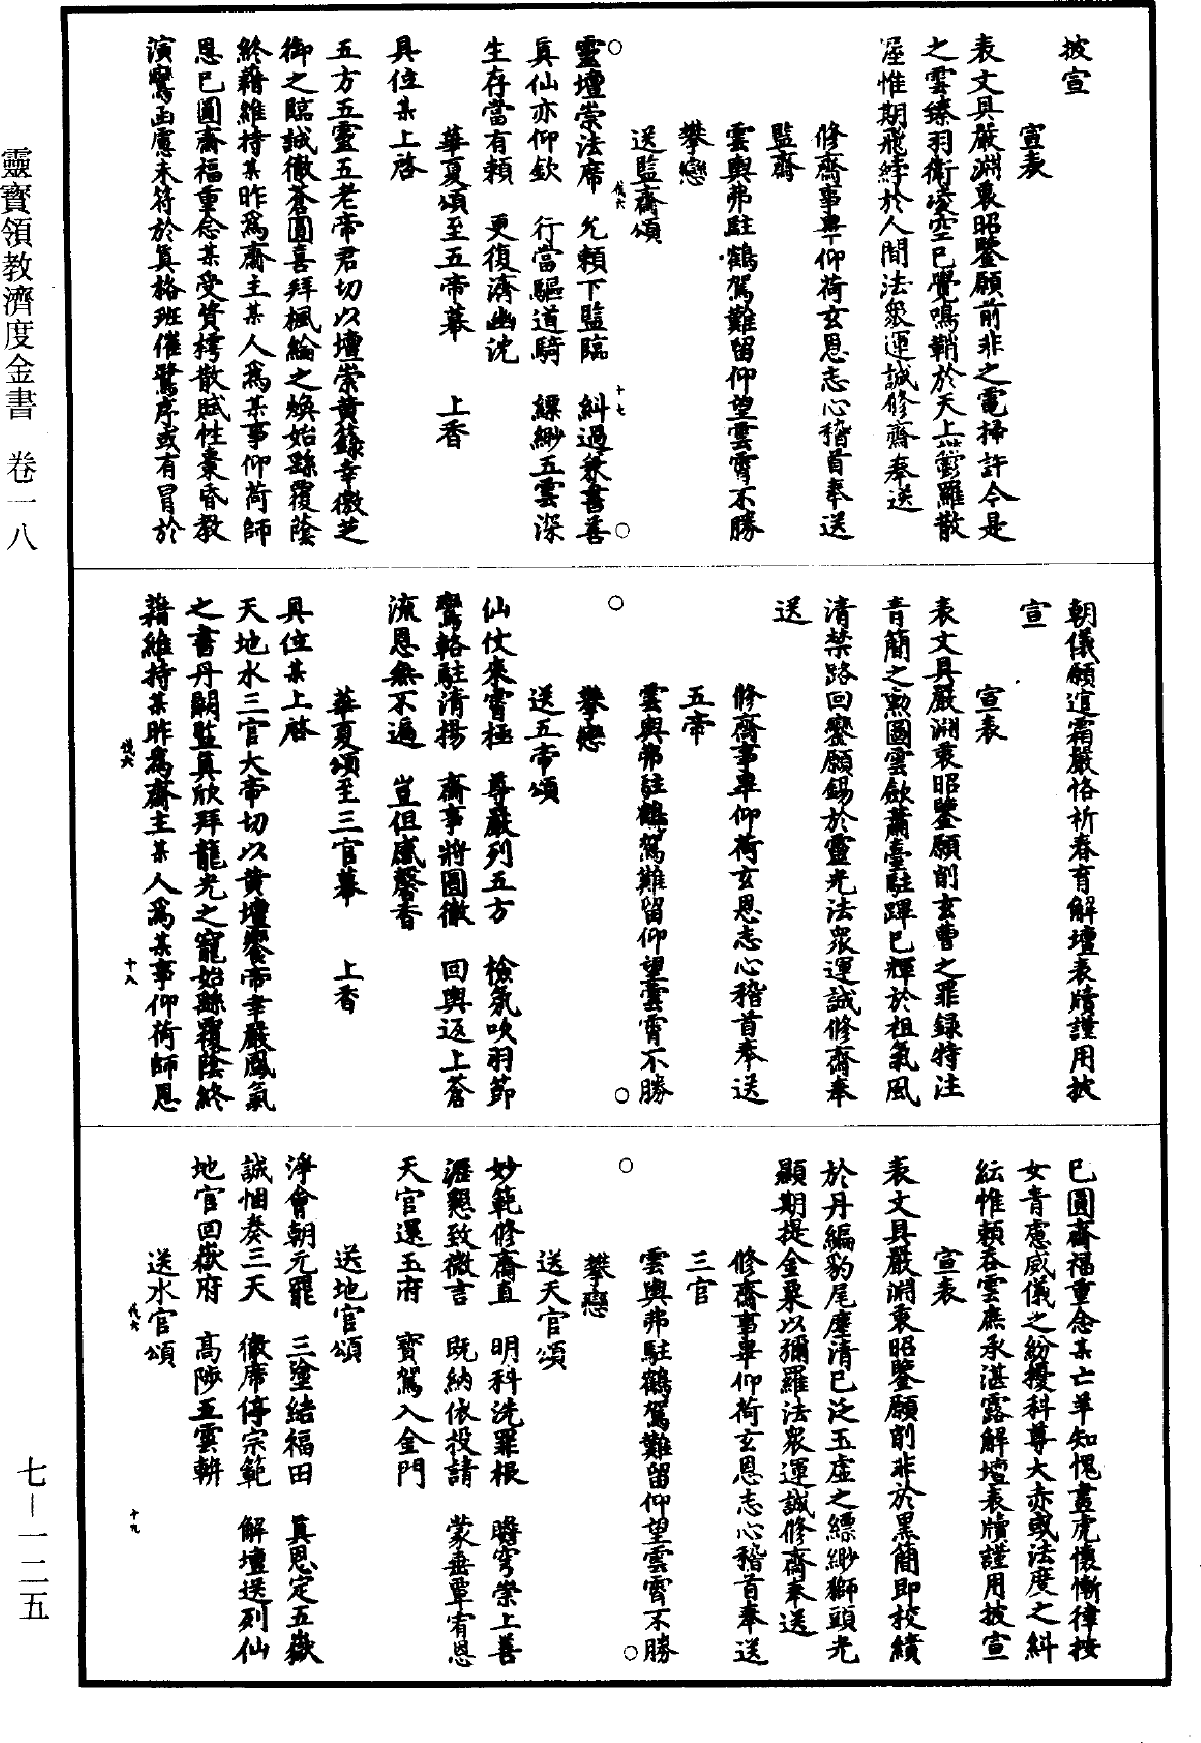 披宣
宣表
表文具嚴淵衷昭鑒願前非之電掃許今是
之雲臻羽衛凌空已覺鳴鞘於天上罻羅散
屋惟期飛綍於人間法衆運誠修齋奉送
修齋事畢仰荷玄恩志心稽首奉送
監齋
雲輿弗駐鶴駕難留仰望雲霄不勝
攀戀
送監齋頌
靈壇崇法席　允賴下監臨　糾過兼書善
真仙亦仰欽　行當驅道騎　縹緲五雲深
生存當有賴　更復濟幽沈
華夏頌至五帝幕　上香
具位某上啓
五方五靈五老帝君切以壇崇黃籙幸徼芝
御之臨誠徹蒼圓喜拜楓綸之煥始繇覆蔭
終藉維持某昨爲齋主某人爲某事仰荷師
恩已圓齋福重念某受質樗散賦性稟昏敷
演鸞函慮未符於真格班催鷺序或有冒於
朝儀願逭霜嚴恪祈春育解壇表牘謹用披
宣
宣表
表文具嚴淵衷昭鑒願削玄曹之罪錄特注
青簡之勲圖雲歛蕭臺駐蹕已輝於祖氣風
清禁路回鑾願錫於靈光法衆運誠修齋奉
送
修齋事畢仰荷玄恩志心稽首奉送
五帝
雲輿弗駐鶴駕難留仰望雲霄不勝
攀戀
送五帝頌
仙仗來霄極　尊嚴列五方　檢氣吹羽節
鸞輅駐清揚　齋事將圓徹　回輿返上蒼
流恩無不遍　豈但感馨香
華夏頌至三官幕　上香
具位某上啓
天地水三官大帝切以黃壇饗帝幸嚴風氣
之書丹闕監真欣拜龍光之寵始繇覆蔭終
藉維持某昨爲齋主某人爲某事仰荷師恩
已圓齋福重念某亡羊知愧畫虎懷慚律按
女青慮威儀之紛擾科尊大赤或法度之糾
紜惟賴吞雲庶承湛露解壇表牘謹用披宣
宣表
表文具嚴淵衷昭鑒願削非於黑簡即校績
於丹編豹尾塵清已泛玉虛之縹緲獅頭光
顯期提金粟以彌羅法衆運誠修齋奉送
修齋事畢仰荷玄恩志心稽首奉送
三官
雲輿弗駐鶴駕難留仰望雲霄不勝
攀戀
送天官頌
妙範修齋直　明科洗罪根　瞻穹崇上善
瀝懇致微言　既納依投請　蒙垂覃宥恩
天官還玉府　寶駕入金門
送地官頌
淨會朝元罷　三塗結福田　真恩定五嶽
誠悃奏三天　徹席停宗範　解壇送列仙
地官回嶽府　高陟五雲軿
送水官頌
靈寶領教濟度金書　卷一八
七－一二五
十七
十八
十九